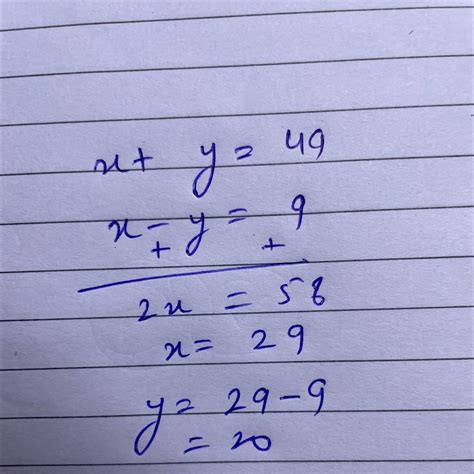 x+ y = 49
x - y = 9
+ +
2x = 58
x = 29
y = 29-9
= 20